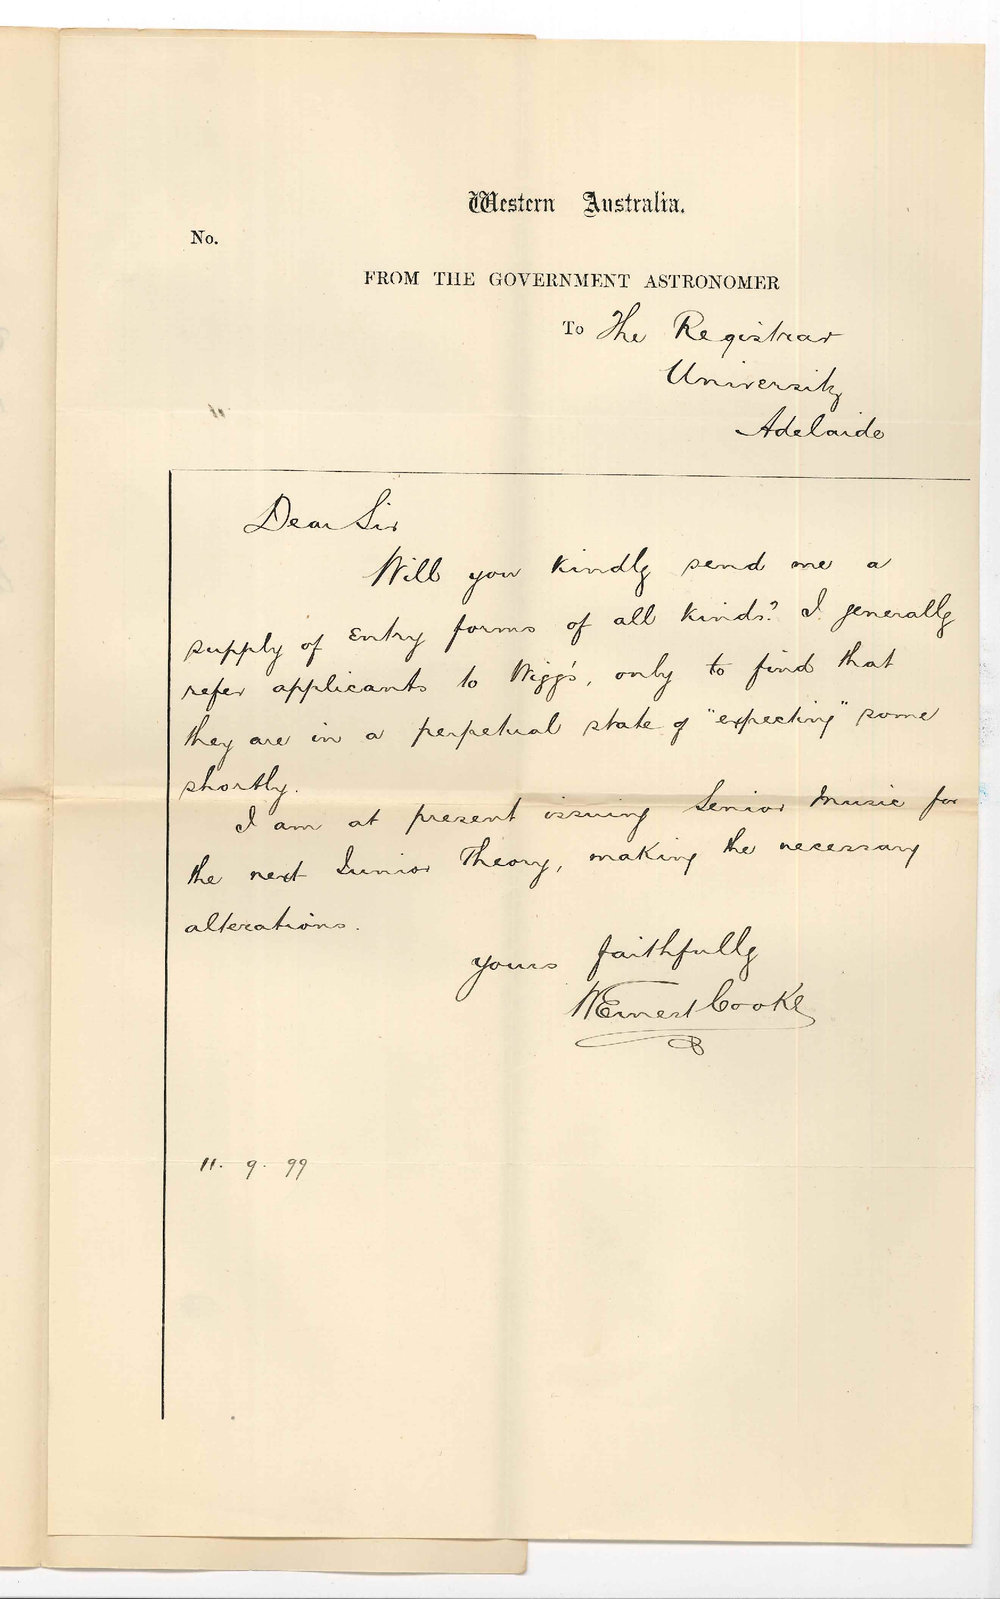 Western Australia.
No.
FROM THE GOVERNMENT ASTRONOMER
To The Registrar
University
Adelaide
Dear Sir
Will you kindly send me a
supply of entry forms of all kinds? I generally
refer applicants to Wigg's, only to find that
they are in a perpetual state of "expecting" some
shortly.
I am at present issuing Senior Music for
the next Junior Theory, making the necessary
alterations.
Yours faithfully
W Ernest Cooke
11. 9. 99